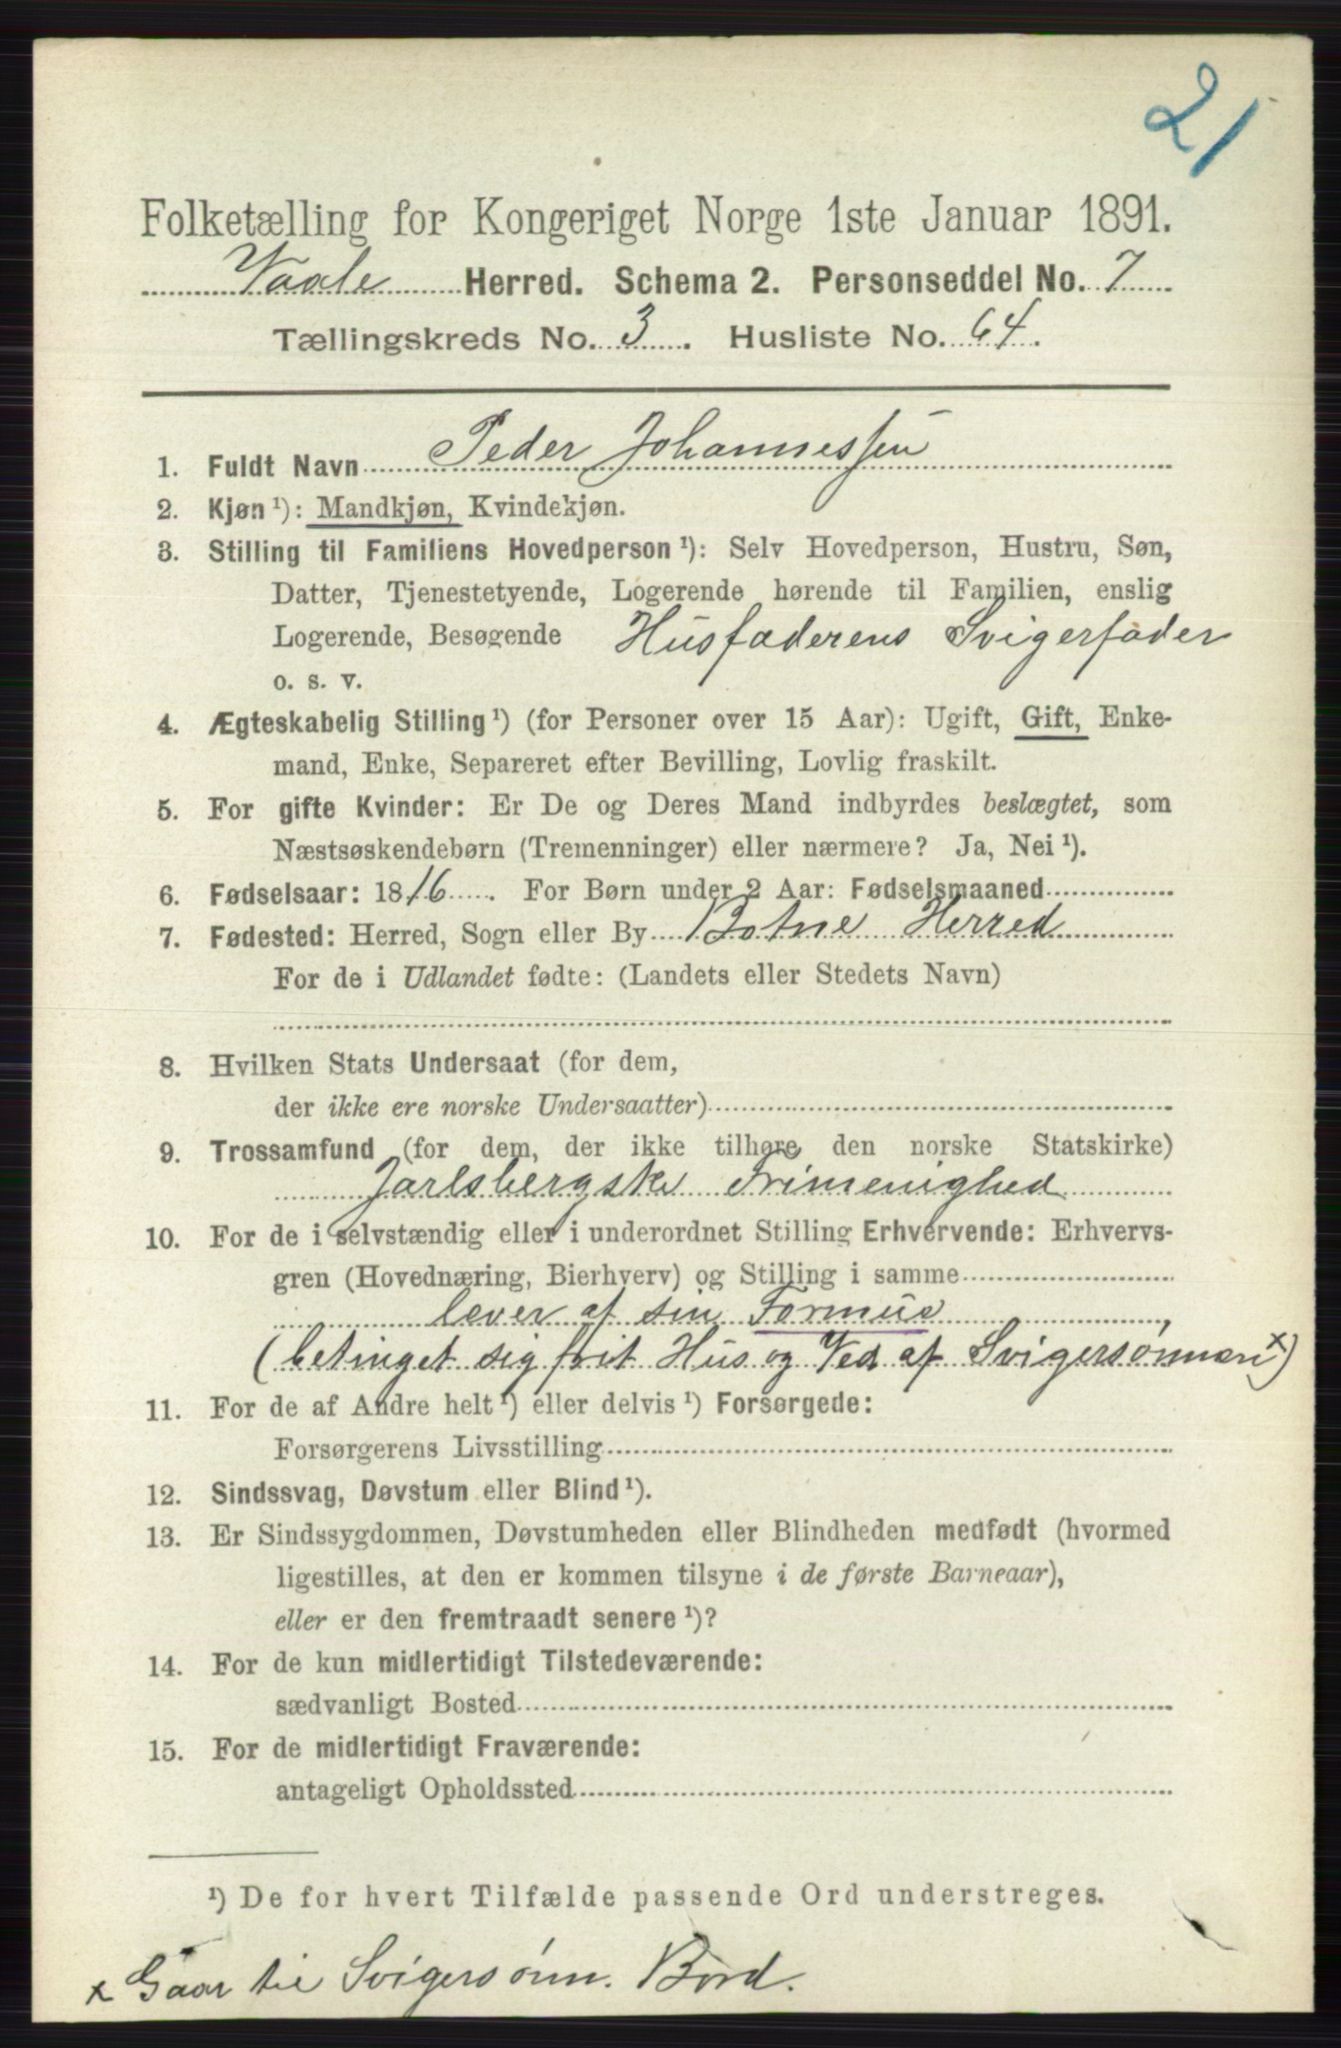 21
Folketælling for Kongeriget Norge 1ste Januar 1891.
Vaale Herred. Schema 2. Personseddel No. 7
Tællingskreds No. 3. Husliste No. 64.
1. Fuldt Navn Peder Johannessen
2. Kjøn ¹): Mandkjøn, Kvindekjøn.
3. Stilling til Familiens Hovedperson ¹): Selv Hovedperson, Hustru, Søn,
Datter, Tjenestetyende, Logerende hørende til Familien, enslig
Logerende, Besøgende Husfaderens Svigerfader
o. s. v.
4. Ægteskabelig Stilling ¹) (for Personer over 15 Aar): Ugift, Gift, Enke-
mand, Enke, Separeret efter Bevilling, Lovlig fraskilt.
5. For gifte Kvinder: Er De og Deres Mand indbyrdes beslægtet, som
Næstsøskendebørn (Tremenninger) eller nærmere? Ja, Nei ¹).
6. Fødselsaar: 1816. For Børn under 2 Aar: Fødselsmaaned
7. Fødested: Herred, Sogn eller By Botne Herred
For de i Udlandet fødte: (Landets eller Stedets Navn)
8. Hvilken Stats Undersaat (for dem,
der ikke ere norske Undersaatter)
9. Trossamfund (for dem, der ikke tilhøre den norske Statskirke)
Jarlsbergske Frimenighed
10. For de i selvstændig eller i underordnet Stilling Erhvervende: Erhvervs-
gren (Hovednæring, Bierhverv) og Stilling i samme
lever af sin Formue,
(betinget sig frit Hus og Ved af Svigersønnen x)
11. For de af Andre helt ¹) eller delvis ¹) Forsørgede:
Forsørgerens Livsstilling
12. Sindssvag, Døvstum eller Blind ¹).
13. Er Sindssygdommen, Døvstumheden eller Blindheden medfødt (hvormed
ligestilles, at den er kommen tilsyne i de første Barneaar),
eller er den fremtraadt senere ¹)?
14. For de kun midlertidigt Tilstedeværende:
sædvanligt Bosted
15. For de midlertidigt Fraværende:
antageligt Opholdssted
¹) De for hvert Tilfælde passende Ord understreges.
x Gaar til Svigersønn. Bord.